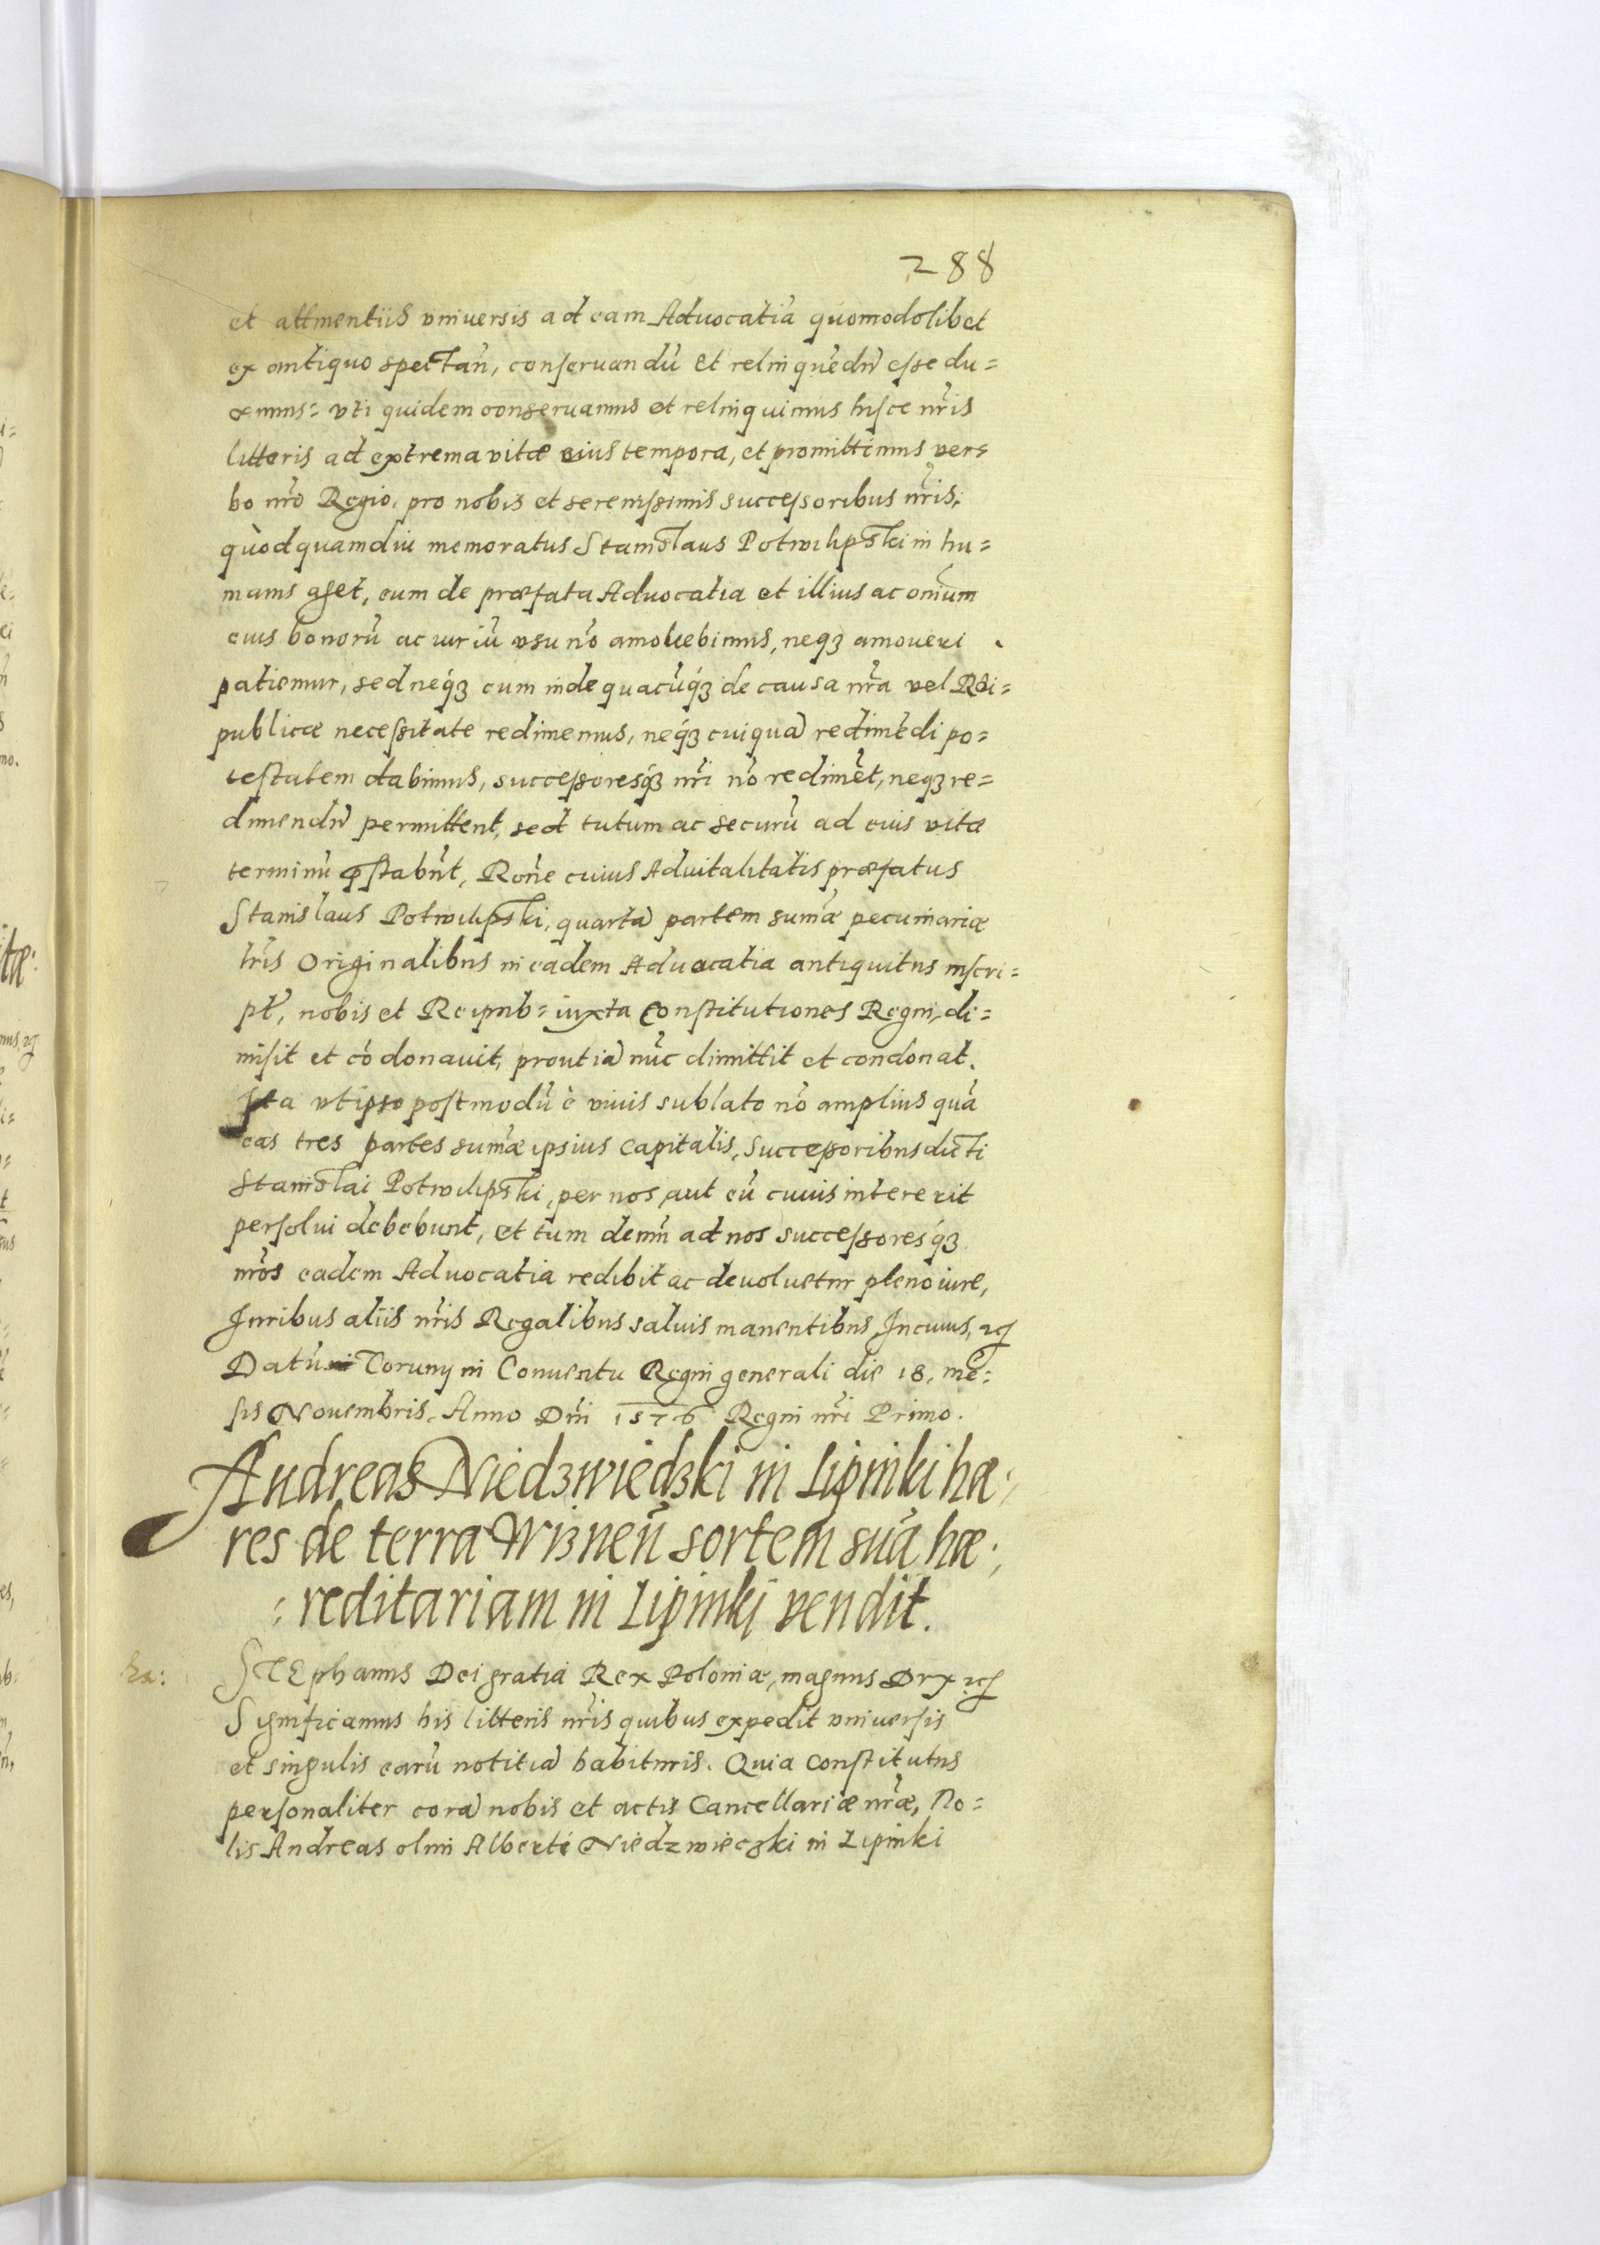 288
et attinentiis vniuersis ad eam Aduocatiā quomodolibet
ex antiquo spectan̄, conseruandū et relinquēdū esse du=
ximus: vti quidem conseruamus et relinquimus hisce nr̄is
litteris ad extrema vitæ eius tempora, et promittimus ver=
bo nr̄o Regio, pro nobis et serenissimis successoribus nr̄is,
quòd quamdiu memoratus Stanislaus Potwilipski in hu=
manis aget, eum de præfata Aduocatia et illius ac omnium
eius bonorū ac iuriū vsu nō amouebimus, neqꝫ amoueri
patiemur, sed neqꝫ eum inde quacūqꝫ de causa nr̄a vel Rei=
publicæ necessitate redimemus, neqꝫ cuiquā redimēdi po=
testatem dabimus, successoresqꝫ nr̄i nō redimēt, neqꝫ re=
dimendū permittent, sed tutum ac securū ad eius vitæ
terminū pstabūt, Rōne cuius Aduitalitatis præfatus
Stanislaus Potwilipski, quartā partem sum̄æ pecuniariæ
lr̄is Originalibus in eadem Aduocatia antiquitus inscri=
pt̄, nobis et Reipub= iuxta Constitutiones Regni, di=
misit et cōdonauit, prout iā nūc dimittit et condonat.
Ita vt ipso postmodū è viuis sublato nō amplius quā
eas tres partes sum̄æ ipsius Capitalis, Successoribus dicti
Stanislai Potwilipski, per nos, aut eū cuius intererit
persolui debebunt, et tum demū ad nos successoresqꝫ
nr̄os eadem Aduocatia redibit ac deuoluetur pleno iure,
Iuribus aliis nr̄is Regalibus saluis manentibus, In cuius, ꝛcꝭ
Datū Toruny in Conuentu Regni generali die 18. mē=
sis Nouembris. Anno Dn̄i 1576 Regni nr̄i Primo.
Andreas Niedzwiedzki in Lipinki hæ:
res de terra Wizneñ sortem suā hæ:
:reditariam in Lipinki vendit.
STEphanus Dei gratia Rex Poloniæ, magnus Dux ꝛcꝭ
Significamus his litteris nr̄is quibus expedit vniuersis
et singulis earū notitiā habituris. Quia Constitutus
personaliter corā nobis et actis Cancellariæ nr̄æ, No=
lis Andreas olim Alberti Niedzwieczki in Lipinki